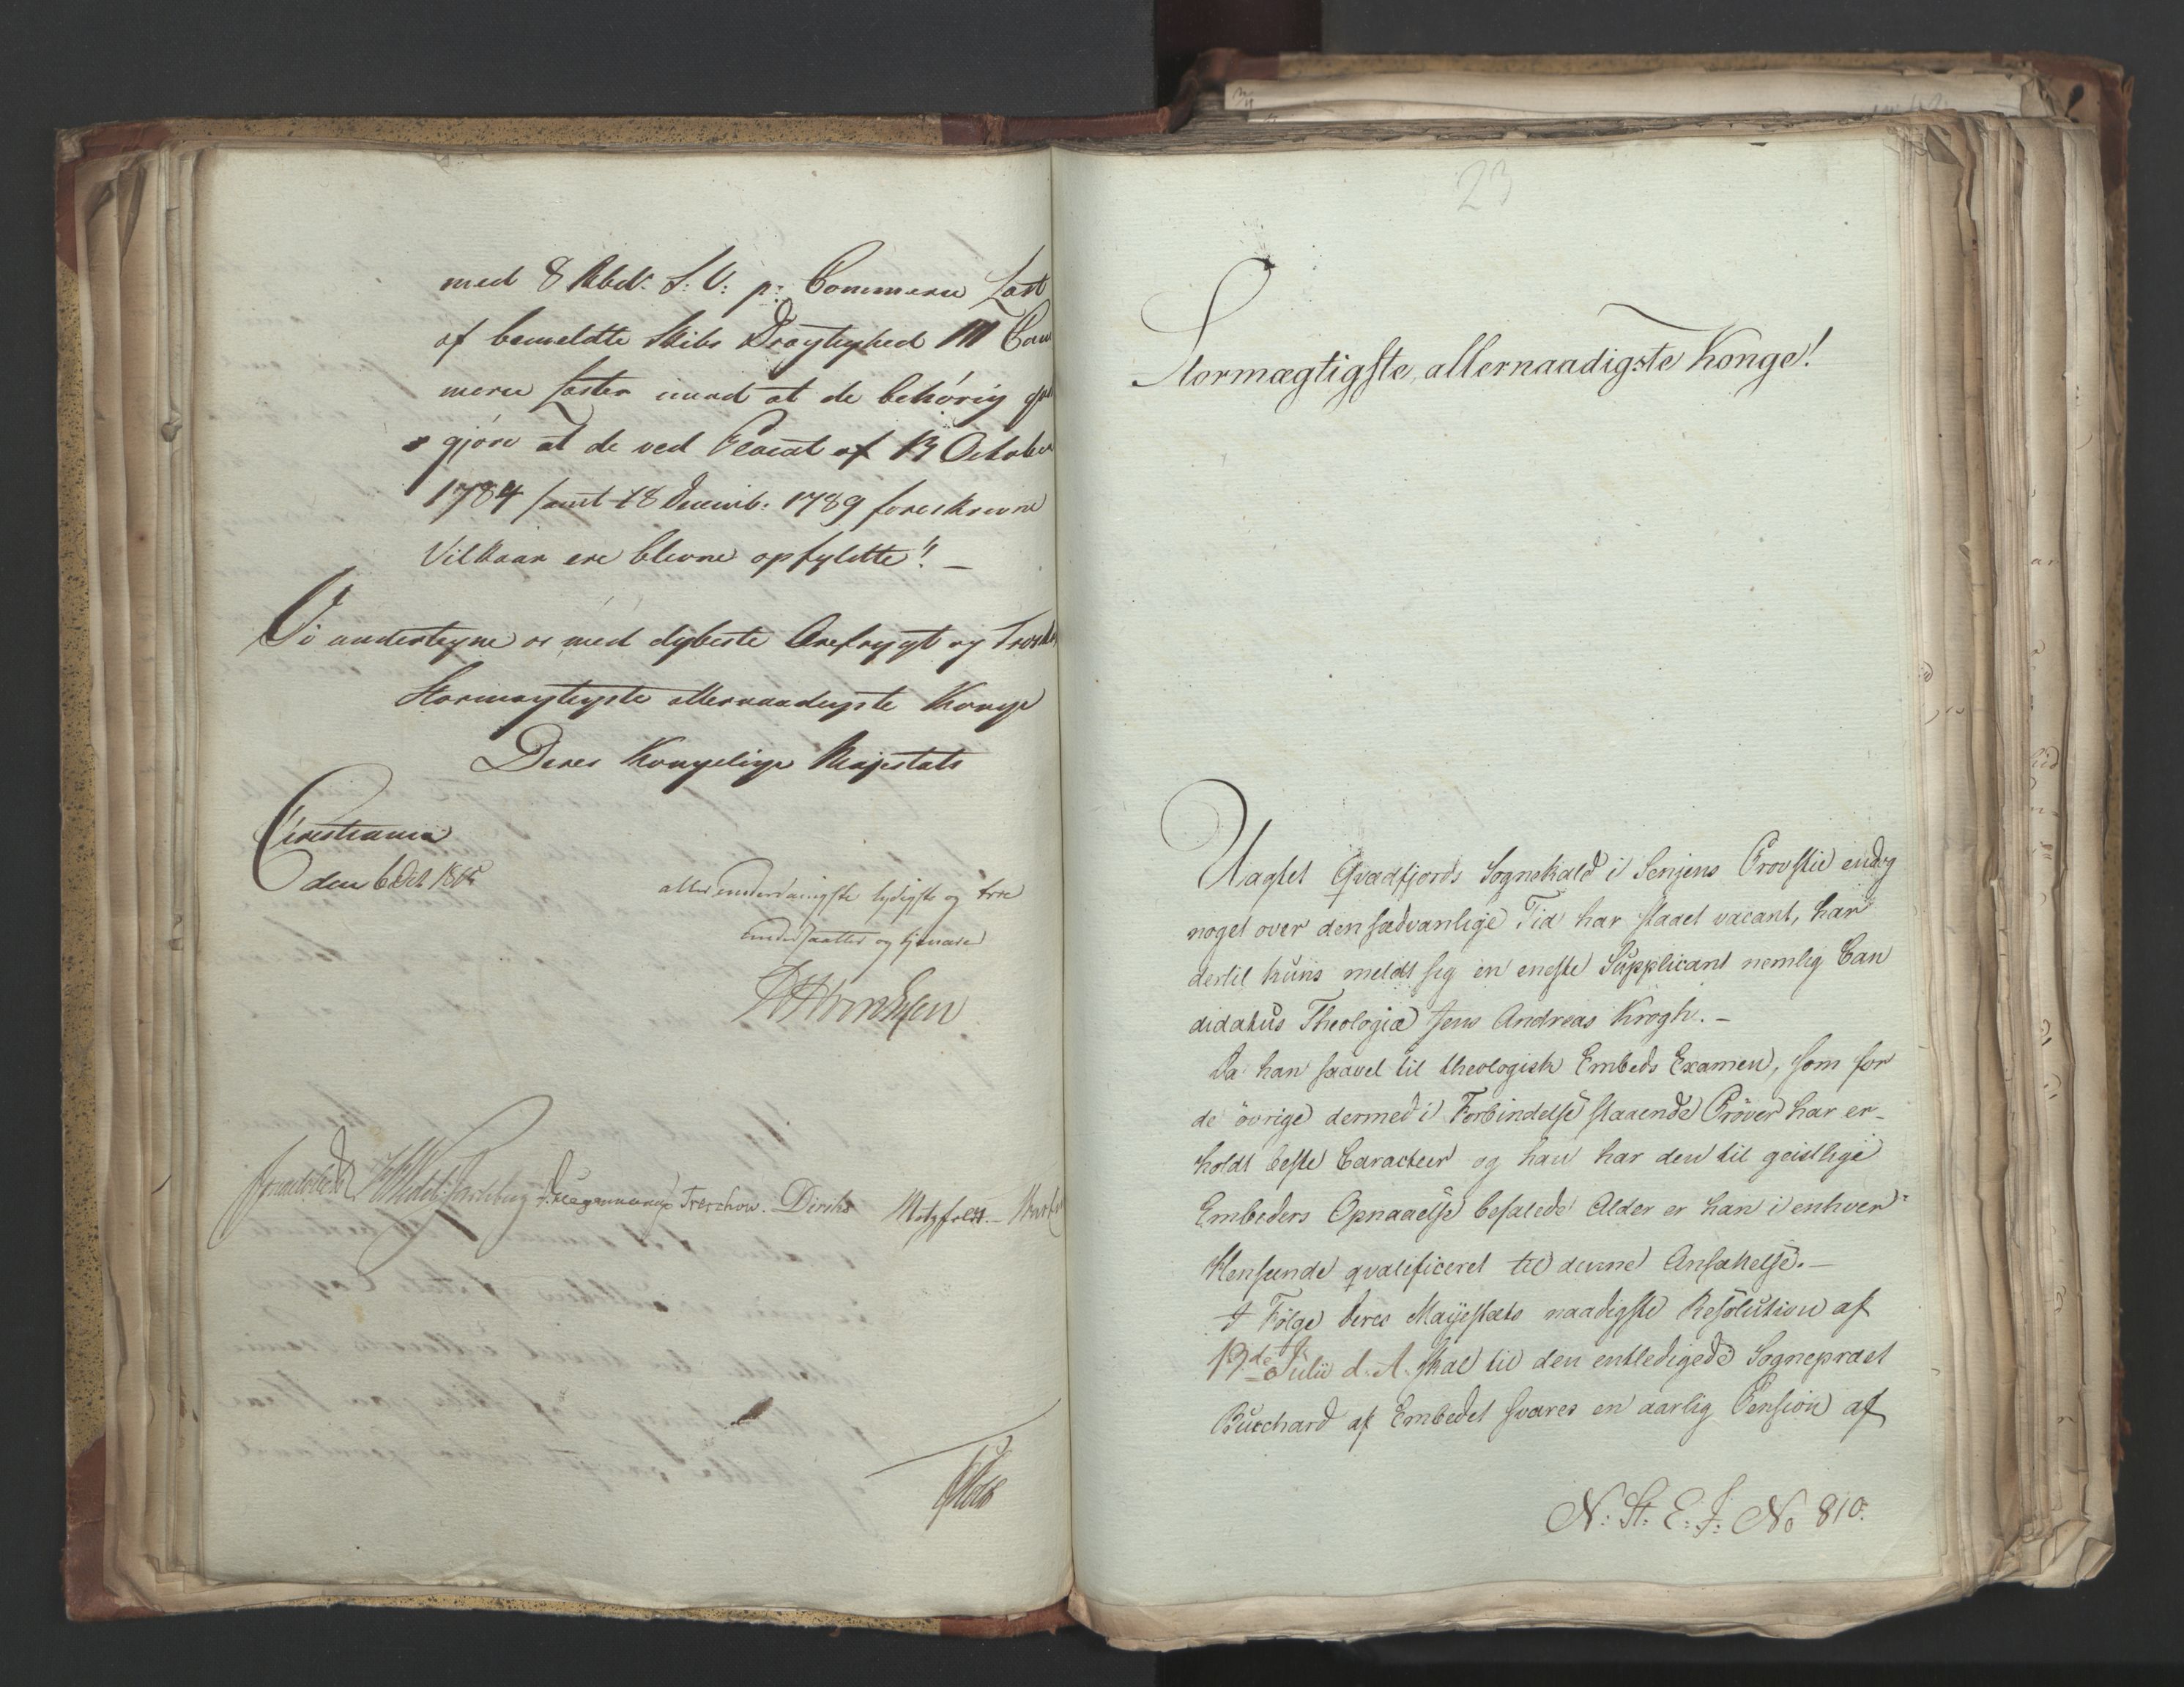 med 8 Rbd. S: V: p: Commerce Last
af bemeldte Skibs Drægtighed 111 Com
merce Læster imod at de behørig god
gjøre at de ved Placat af 13 October
1784 samt 18 Decemb: 1789 foreskrevne
Vilkaar ere blevne opfyldte". —
Vi undertegne os med dybeste Ærefrygt og Troskab
Stormægtigste allernaadigste Konge
Deres Kongelige Majestæts
Christiania
den 6 Oct 1815
allerunderdanigste lydigste og troe
undersaatter og tjenere
Treschow. Diriks Motzfeldt.
23
Stormægtigste, allernaadigste Konge!
Uagtet Qvædfjords Sognekald i Senjens Provstie endog
noget over den sædvanlige Tid har staaet vacant, har
dertil kuns meldt sig en eneste Supplicant nemlig Can
didatus Theologiæ Jens Andreas Krogh. —
Da han saavel til theologisk Embeds Examen, som for
de övrige dermed i Forbindelse staaende Pröver har er-
holdt beste Caracteer og han har den til geistlige
Embeders Opnaaelse befalede Alder er han i enhver
Henseende qvalificeret til denne Ansættelse. —
I Fölge Deres Majestæts naadigste Resolution af
13de Julii d. A. skal til den entledigede Sognepræst
Burchard af Embedet svares en aarlig Pension af
N: St: E: J: No 810.